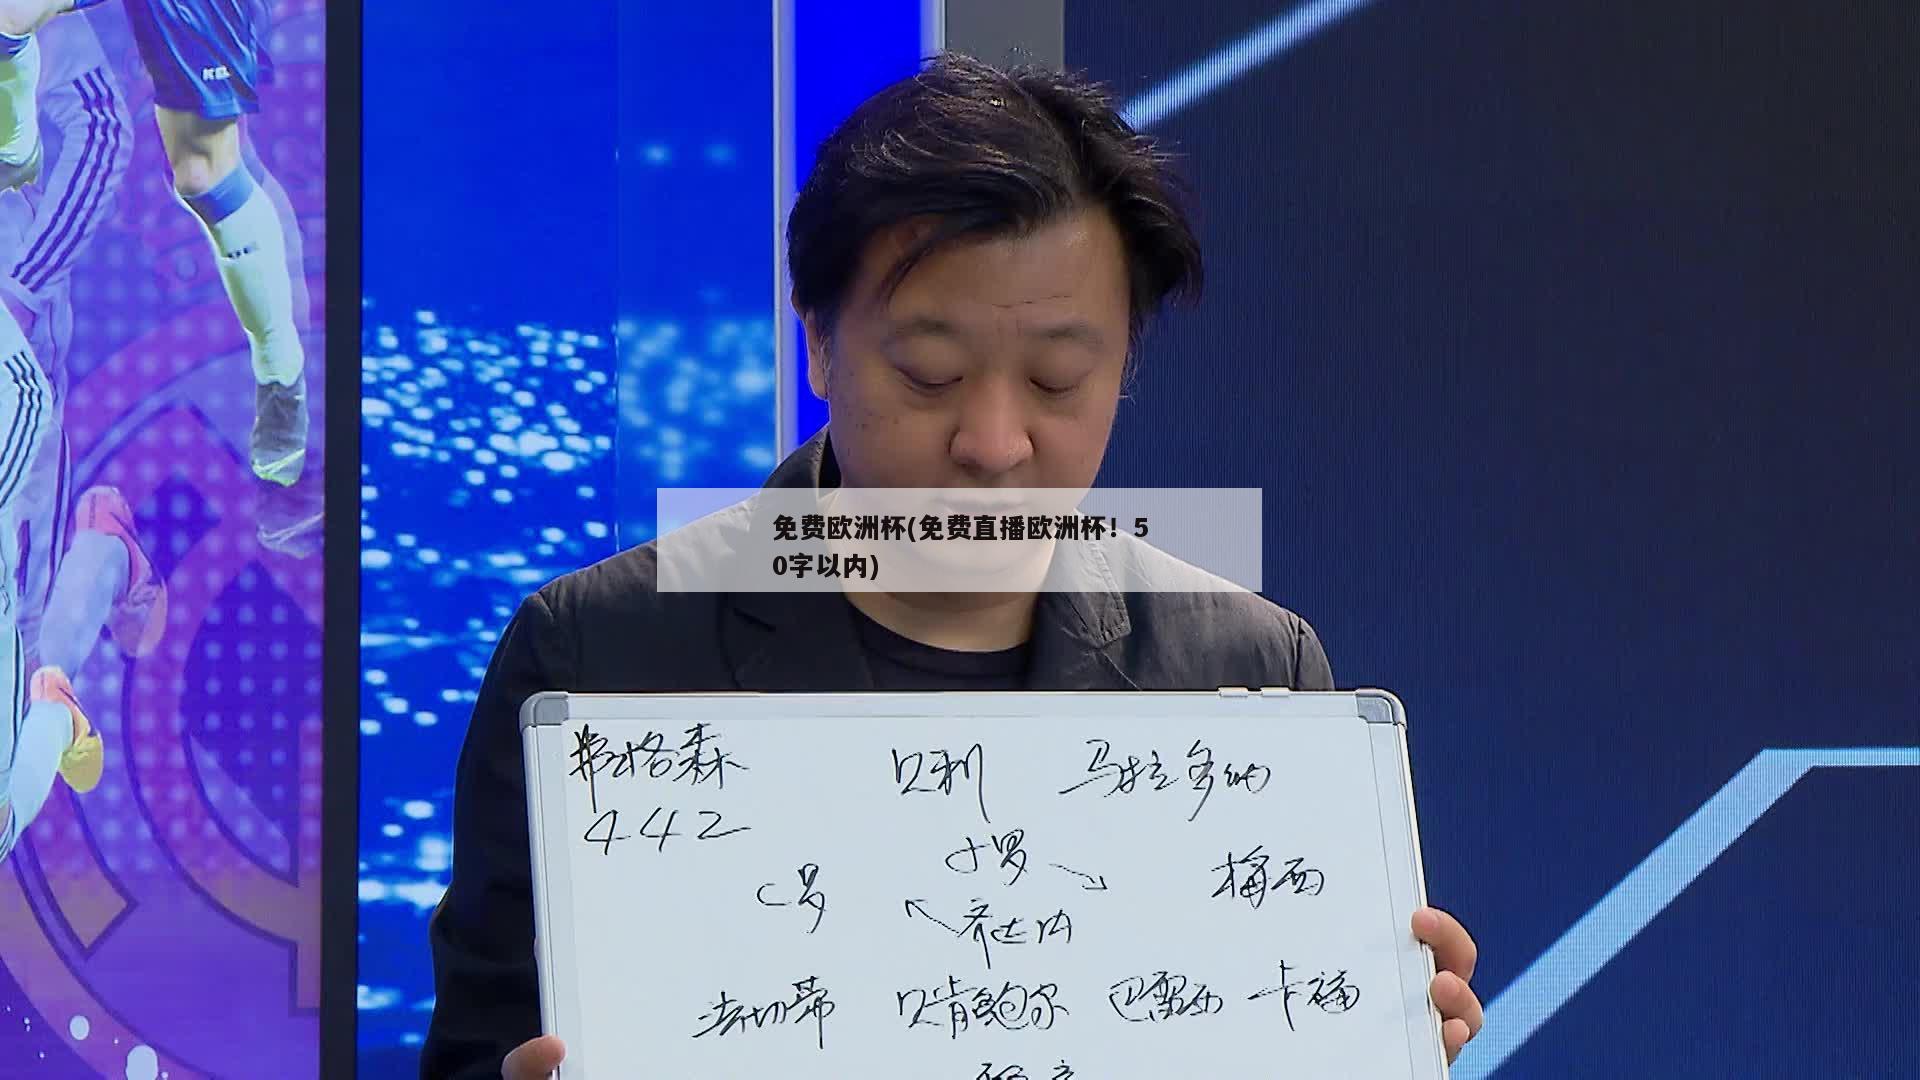 免费欧洲杯(免费直播欧洲杯！5
0字以内)
弗格森 贝利 马拉多纳
442
小罗
C罗 梅西
齐达内
法切蒂 贝肯鲍尔 巴雷西 卡福